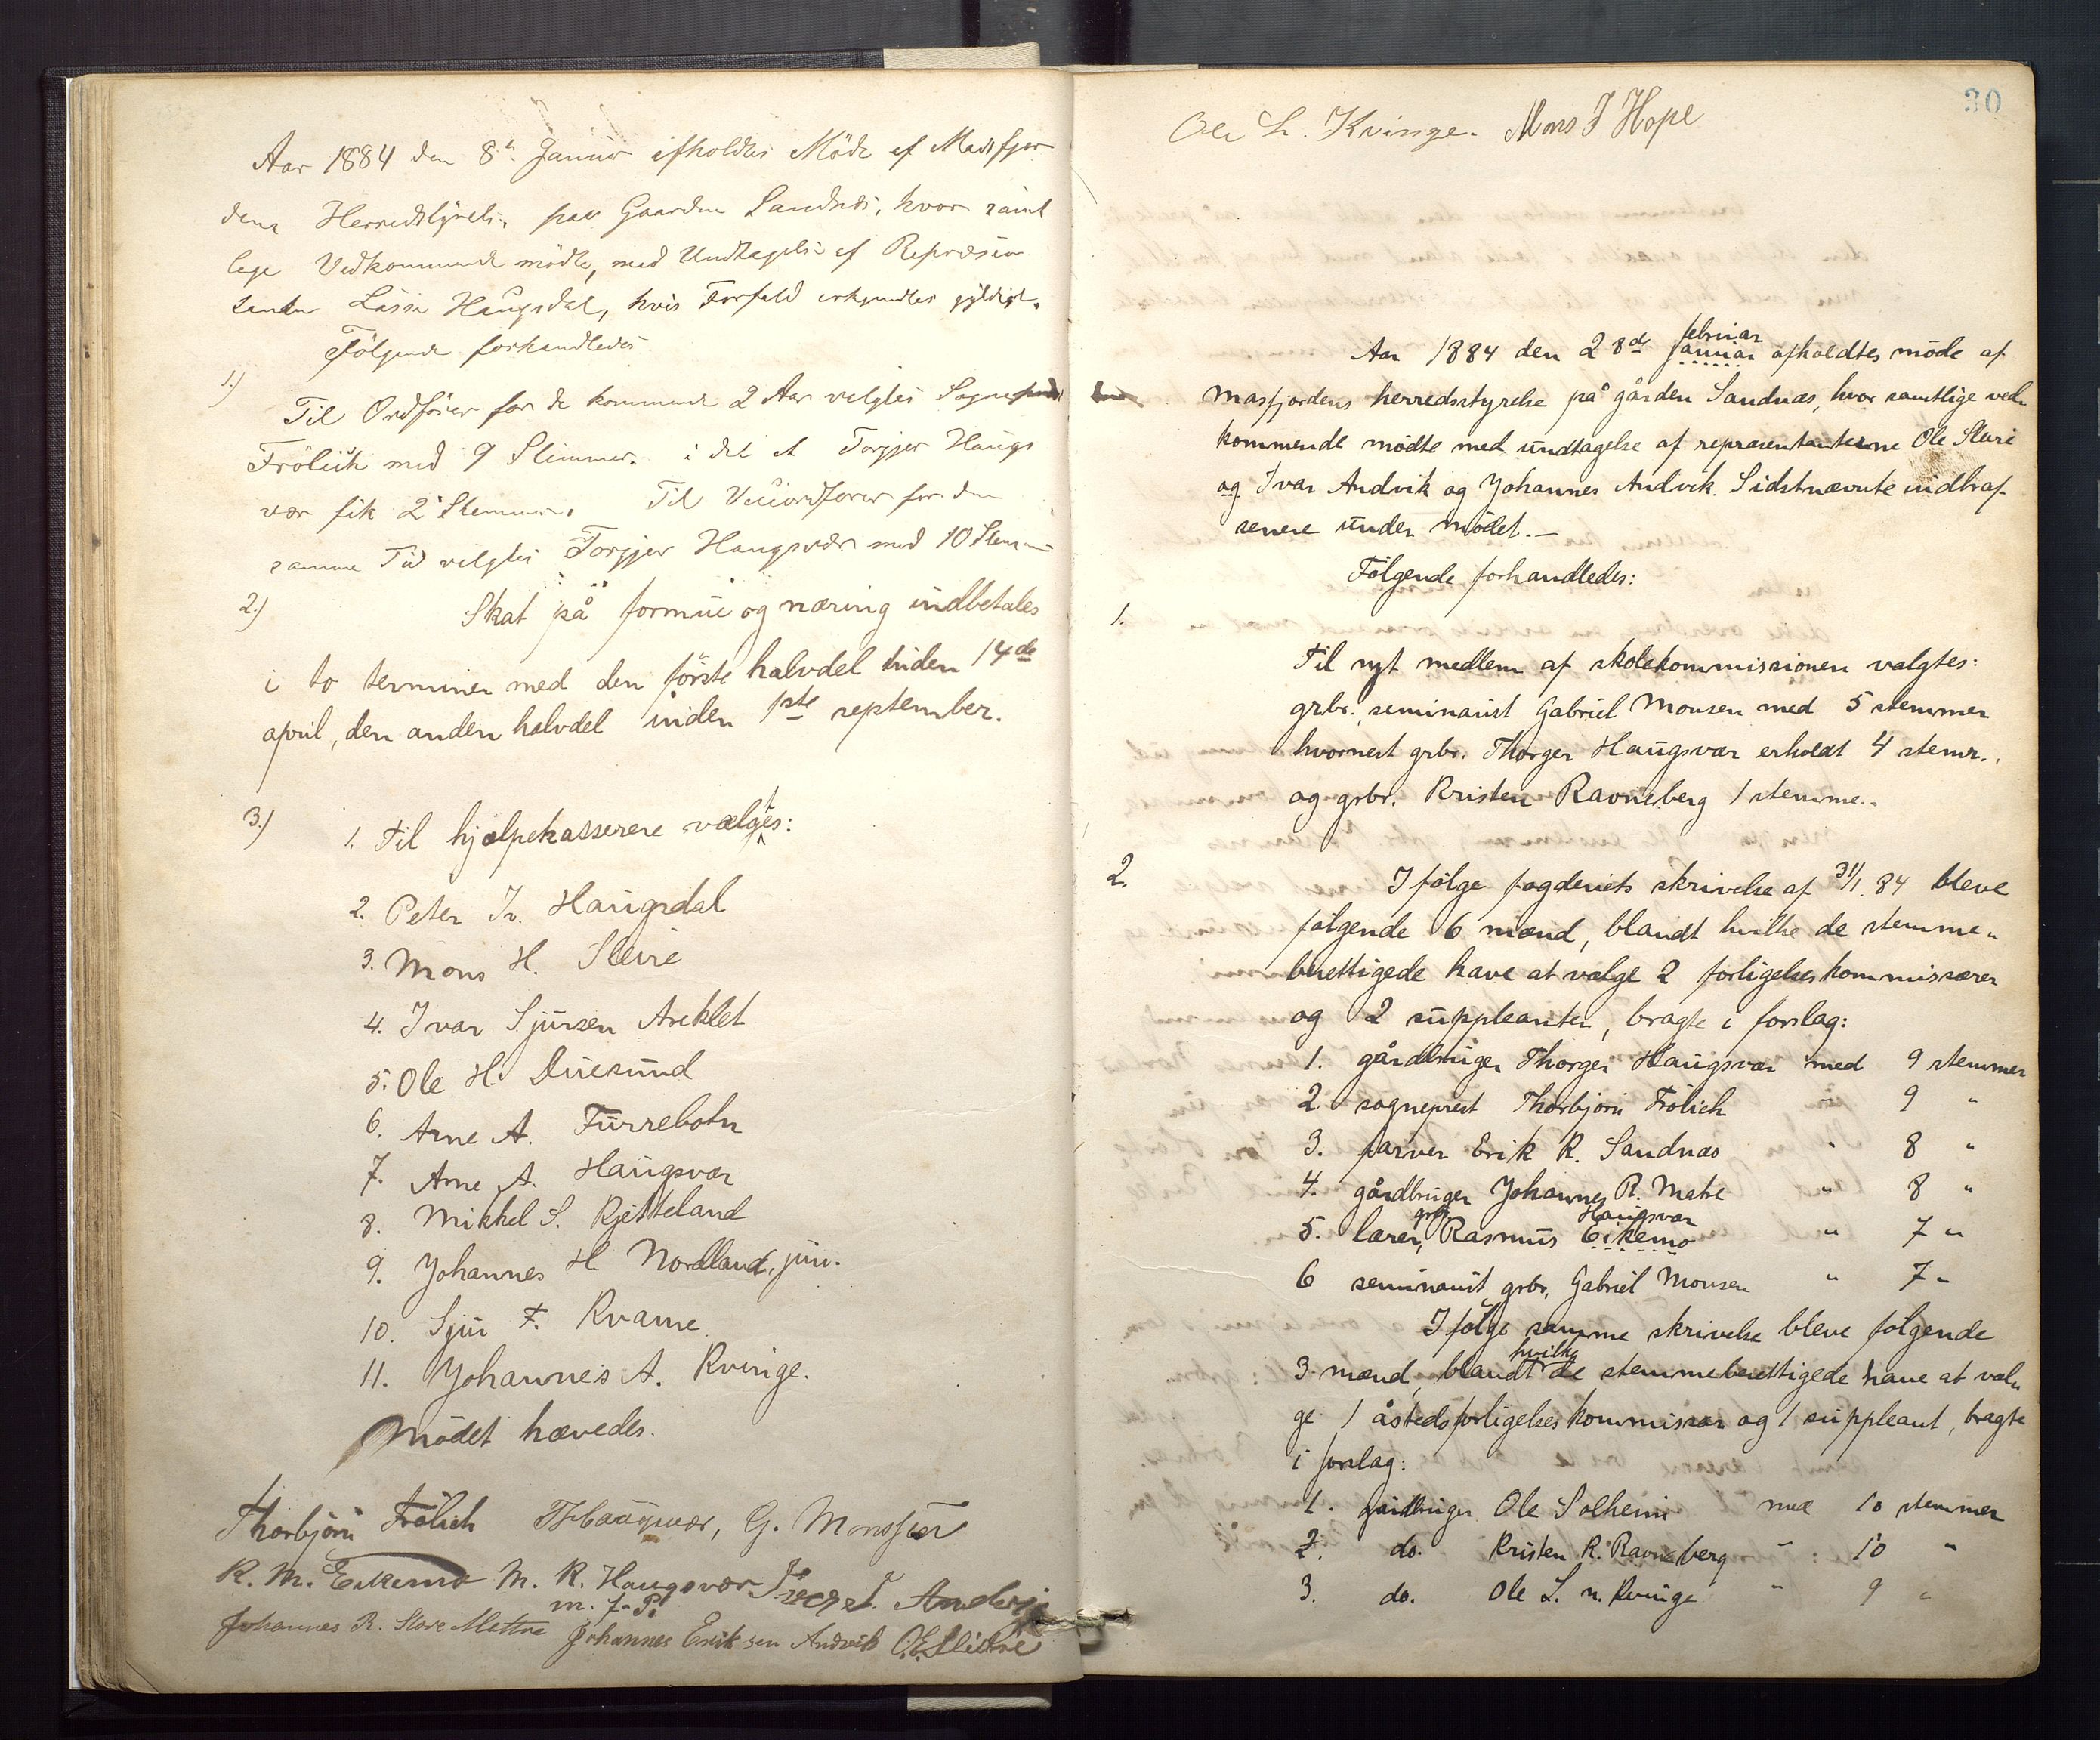 Aar 1884 den 8de Januar afholdtes Möde af Masfjor
dens Herredstyrelse, paa Gaarden Sandnæs, hvor samt
lege Vedkommende mödte, med Undtagelse af Repræsen
tanten Lasse Haugsdal, hvis Forfald erkjendtes gyldigt.
Fölgende forhandledes
1.) Til Ordförer for de kommende 2 Aar valgtes Sogneprest
Frölich med 9 Stemmer. i det at Torgjer Haugs
vær fik 2 Stemmer. Til Viceordförer for den
samme Tid valgtes Torgjer Haugsvær med 10 Stemmer
2.) Skat på formue og næring indbetales
i to terminer med den förste halvdel inden 14de
april, den anden halvdel inden 1ste september.
3.) 1. Til hjælpekasserere vælgtes:
2. Peter Iv. Haugsdal
3. Mons H. Sleire
4. Ivar Sjursen Areklet
5. Ole H. Duesund
6. Arne A. Furrebotn
7. Arne A. Haugsvær
8. Mikkel S. Kjetteland
9. Johannes H. Nordland, jun.
10. Sjur F. Kvame
11. Johannes A. Kvinge.
Mödet hævedes.
Thorbjörn Frölich THaugsvær, G. Monssen
R. M. Eikemo M. R. Haugsvær Ivar I. Andvik
m. f. P.
Johannes R. Store Mattre Johannes Eriksen Andvik O. E. Sleire
30
Ole L. Kvinge. Mons J Hope
Aar 1884 den 28de januar februar afholdtes möde af
Masfjordens herredsstyrelse på gården Sandnæs, hvor samtlige ved-
kommende mödte med undtagelse af repræsentanterne Ole Sleire
og Ivar Andvik og Johannes Andvik. Sidstnævnte indtraf
senere under mödet.—
Fölgende forhandledes:
1.
Til nyt medlem af skolekommissionen valgtes:
grbr. seminarist Gabriel Monsen med 5 stemmer
hvornest grbr. Thorger Haugsvær erholdt 4 stemr.,
og grbr. Kristen Ravneberg 1 stemme..
2. Ifölge fogderiets skrivelse af 31/1. 84 bleve
fölgende 6 mænd, blandt hvilke de stemme-
berettigede have at vælge 2 forligelseskommissærer
og 2 suppleanter, bragte i forslag:
1. gårdbruger Thorger Haugsvær med 9 stemmer
2. sogneprest Thorbjörn Frölich " 9 "
3. farver Erik R. Sandnæs " 8 "
4. gårdbruger Johannes R. Matre " 8 "
5. lærer, grbr. Rasmus Eikemo Haugsvær " 7 "
6 seminarist, grbr. Gabriel Monsen " 7 "
Ifölge samme skrivelse bleve fölgende
3 mænd, blandt hvilke de stemmeberettigede have at væl-
ge 1 åstedsforligelseskommissær og 1 suppleant, bragte
i forslag:
1. gårdbruger Ole Solheim med 10 stemmer
2. do. Kristen R. Ravneberg " 10 "
3. do. Ole L. n. Kvinge " 9 "